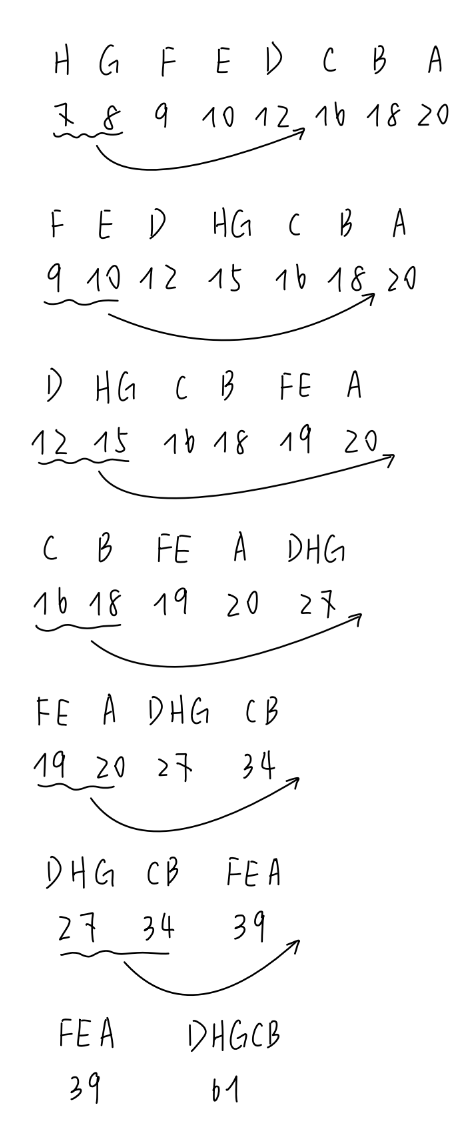 H G F E D C B A
7 8 9 10 12 16 18 20
F E D HG C B A
9 10 12 15 16 18 20
D HG C B FE A
12 15 16 18 19 20
C B FE A DHG
16 18 19 20 27
FE A DHG CB
19 20 27 34
DHG CB FEA
27 34 39
FEA DHGCB
39 61